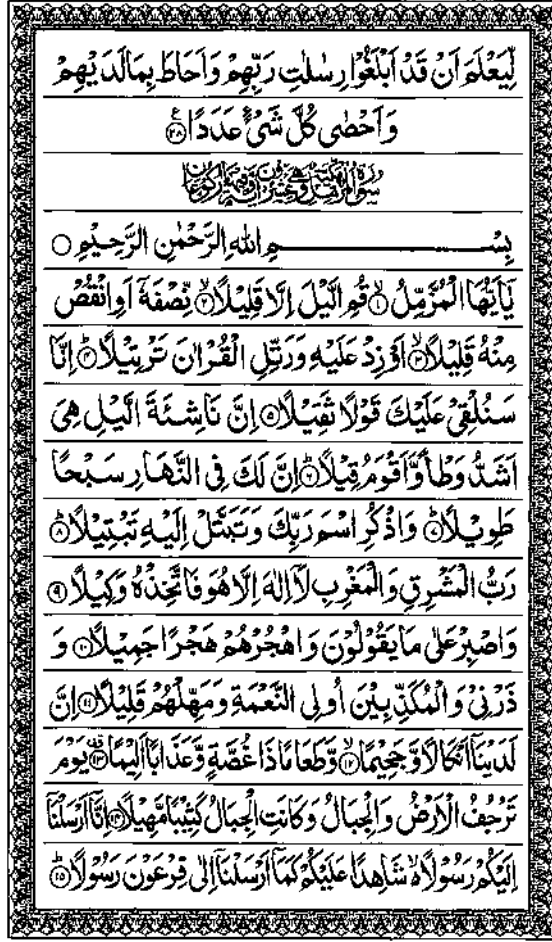 لِّيَعْلَمَ اَنْ قَدْ اَبْلَغُوْا رِسٰلٰتِ رَبِّهِمْ وَاَحَاطَ بِمَا لَدَيْهِمْ
وَاَحْصٰى كُلَّ شَىْءٍ عَدَدًا ۝۲۸
بِسْمِ اللهِ الرَّحْمٰنِ الرَّحِيْمِ ۝
يٰۤاَيُّهَا الْمُزَّمِّلُ ۝۱ قُمِ الَّيْلَ اِلَّا قَلِيْلًا ۝۲ نِّصْفَهٗۤ اَوِ انْقُصْ
مِنْهُ قَلِيْلًا ۝۳ اَوْ زِدْ عَلَيْهِ وَرَتِّلِ الْقُرْاٰنَ تَرْتِيْلًا ۝۴ اِنَّا
سَنُلْقِىْ عَلَيْكَ قَوْلًا ثَقِيْلًا ۝۵ اِنَّ نَاشِئَةَ الَّيْلِ هِىَ
اَشَدُّ وَطْاً وَّاَقْوَمُ قِيْلًا ۝۶ اِنَّ لَكَ فِى النَّهَارِ سَبْحًا
طَوِيْلًا ۝۷ وَاذْكُرِ اسْمَ رَبِّكَ وَتَبَتَّلْ اِلَيْهِ تَبْتِيْلًا ۝۸
رَبُّ الْمَشْرِقِ وَالْمَغْرِبِ لَاۤ اِلٰهَ اِلَّا هُوَ فَاتَّخِذْهُ وَكِيْلًا ۝۹
وَاصْبِرْ عَلٰى مَا يَقُوْلُوْنَ وَاهْجُرْهُمْ هَجْرًا جَمِيْلًا ۝۱۰ وَ
ذَرْنِىْ وَالْمُكَذِّبِيْنَ اُولِى النَّعْمَةِ وَمَهِّلْهُمْ قَلِيْلًا ۝۱۱ اِنَّ
لَدَيْنَاۤ اَنْكَالًا وَّجَحِيْمًا ۝۱۲ وَّطَعَامًا ذَا غُصَّةٍ وَّعَذَابًا اَلِيْمًا ۝۱۳ يَوْمَ
تَرْجُفُ الْاَرْضُ وَالْجِبَالُ وَكَانَتِ الْجِبَالُ كَثِيْبًا مَّهِيْلًا ۝۱۴ اِنَّاۤ اَرْسَلْنَاۤ
اِلَيْكُمْ رَسُوْلًا ۙ شَاهِدًا عَلَيْكُمْ كَمَاۤ اَرْسَلْنَاۤ اِلٰى فِرْعَوْنَ رَسُوْلًا ۝۱۵